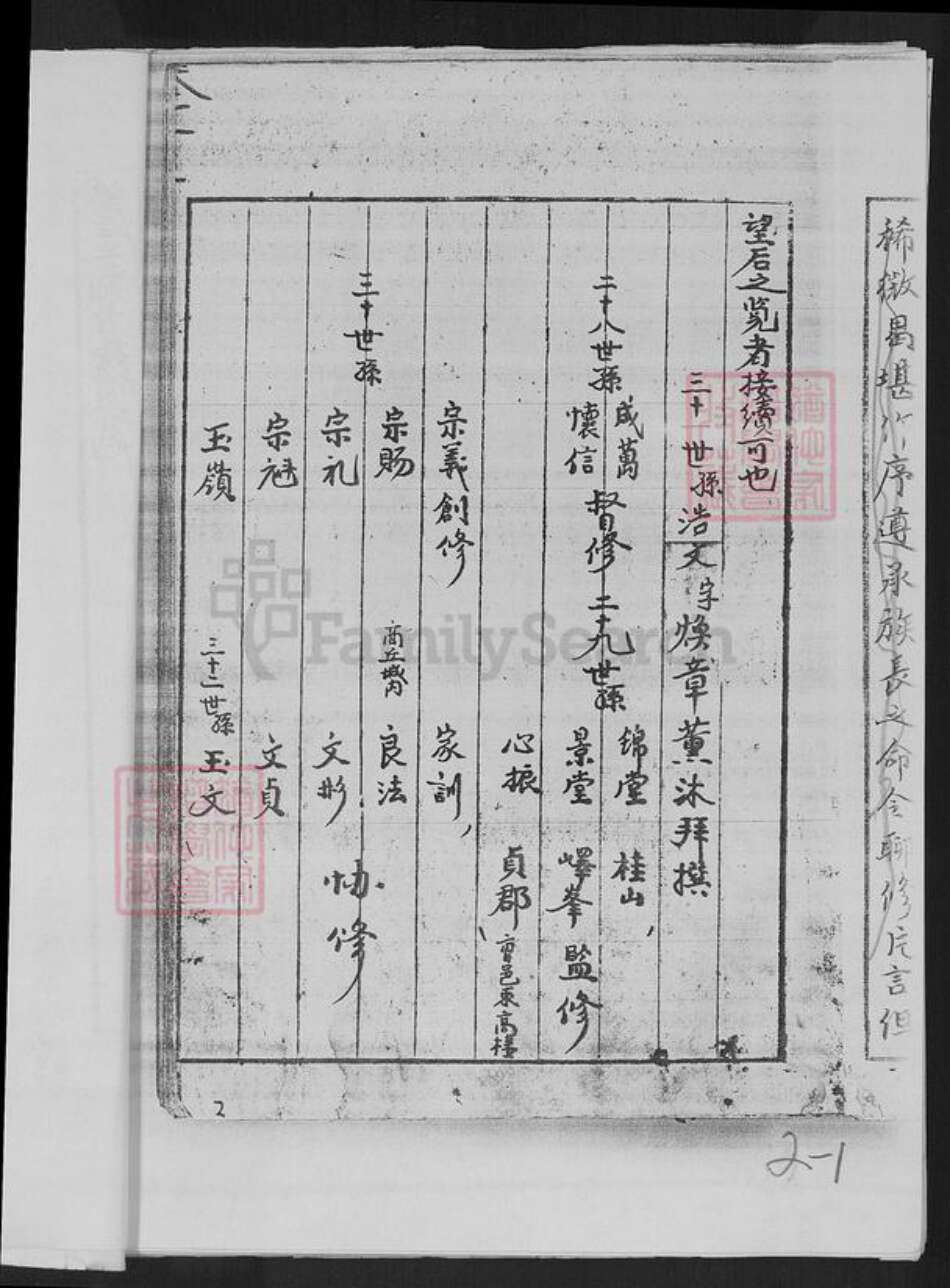 稀微曷堪作序遵承族長之命令聊修片言但
望后之覧者接續可也
三十世孫浩文字焕章薰沐拜撰
二十八世孫 成萬 懷信 督修 二十九世孫 錦堂 桂山
景堂 嶧峯 監修
心振 貞郡 曹邑東高楼
三十世孫
宗義創修 家訓
宗賜 商丘城内 良法
宗礼 文彤 协修
宗魁 文貞
玉嶺 三十二世孫 玉文
2
2-1
FamilySearch